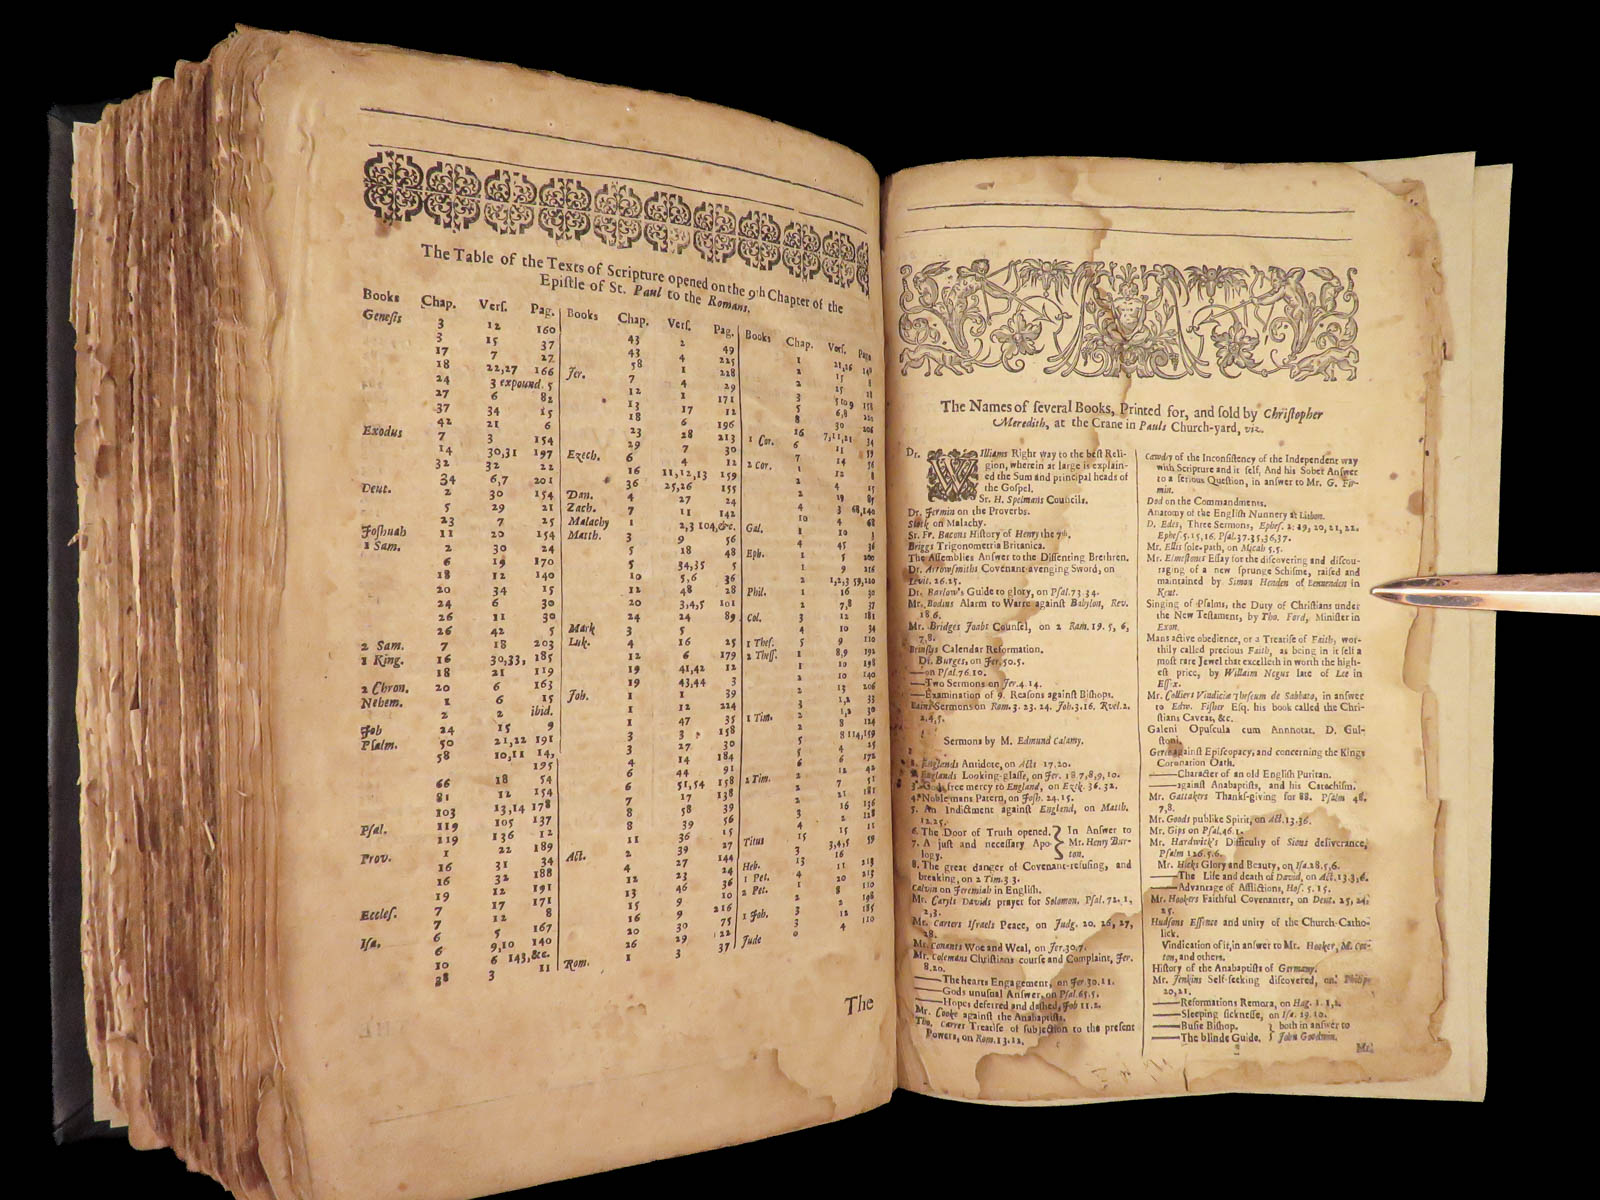 The Table of the Texts of Scripture opened on the 9th Chapter of the
Epiſtle of St. Paul to the Romans.
Books Chap. Verſ. Pag.
Genesis 3 12 160
3 15 37
17 7 27
18 22,27 166
24 3 expound. 5
27 6 82
37 34 15
42 21 6
Exodus 7 3 154
14 30,31 197
32 32 22
34 6,7 201
Deut. 2 30 154
5 29 21
23 7 25
Joſhuah 11 20 154
1 Sam. 2 30 24
6 19 170
18 12 140
20 34 15
24 6 30
26 11 30
26 42 5
2 Sam. 7 18 203
1 King. 16 30,33, 185
18 21 119
2 Chron. 20 6 163
Nehem. 1 6 15
2 2 ibid.
Job 24 15 9
Pſalm. 50 21,22 191
58 10,11 14,
195
66 18 54
81 12 154
103 13,14 178
119 105 137
Pſal. 119 136 12
Prov. 1 22 189
16 31 34
16 32 188
19 12 191
Eccleſ. 7 17 171
7 12 8
Iſa. 6 5 167
6 9,10 140
10 6 143,&c.
38 3 11
Books Chap. Verſ. Pag.
43 2 49
43 4 225
58 1 228
Jer. 7 4 29
12 1 171
13 17 12
18 6 196
23 28 213
29 7 30
Ezech. 6 4 12
16 11,12,13 159
36 25,26 155
Dan. 4 27 24
Zach. 7 11 142
Malachy 1 2,3 104,&c.
Matth. 3 9 56
5 18 48
5 34,35 5
10 5,6 36
12 48 28
20 3,4,5 101
24 24 89
Mark 3 5
Luk. 4 16 25
12 6 179
19 41,42 12
19 43,44 3
Joh. 1 1 39
1 12 224
1 47 35
3 3 158
3 27 30
4 14 184
6 44 91
6 51,54 158
7 17 138
8 58 39
8 39 56
11 36 15
Act. 2 39 27
4 27 144
12 23 24
13 46 36
15 9 10
16 9 216
20 30 75
26 29 122
Rom. 1 3 37
Books Chap. Verſ. Page
1 Cor.
2 Cor.
Gal.
Eph.
Phil.
Col.
1 Theſ.
2 Theſſ.
1 Tim.
2 Tim.
Titus
Heb.
1 Pet.
2 Pet.
1 Joh.
Jude
The
The Names of ſeveral Books, Printed for, and ſold by Chriſtopher
Meredith, at the Crane in Pauls Church-yard, viz.
Dr. Williams Right way to the beſt Reli-
gion, wherein at large is explain-
ed the Sum and principal heads of
the Goſpel.
Sr. H. Spelmans Councils.
Dr. Jermin on the Proverbs.
Stock on Malachy.
Sr. Fr. Bacons Hiſtory of Henry the 7th.
Briggs Trigonometria Britanica.
The Aſſemblies Anſwer to the Diſſenting Brethren.
Dr. Arrowſmiths Covenant-avenging Sword, on
Levit. 26.25.
Dr. Barlow's Guide to glory, on Pſal. 73.24.
Mr. Bodins Alarm to Warre againſt Babylon, Rev.
18 6.
Mr. Bridges Joabs Counſel, on 2 Sam. 19. 5, 6,
7,8.
Brinſlys Calendar Reformation.
Dr. Burges, on Jer. 50.5.
—on Pſal. 76.10.
—Two Sermons on Jer. 4. 14.
—Examination of 9. Reaſons againſt Biſhops.
Sermons on Rom. 3. 23. 24. Joh. 3.16. Revel. 2.
2,4,5.
Sermons by M. Edmund Calamy.
1. Englands Antidote, on Acts 17,20.
2. Englands Looking-glaſſe, on Jer. 18.7,8,9,10.
3. Gods free mercy to England, on Ezek. 36. 32.
4. Noblemans Patern, on Joſh. 24. 15.
5. An Indictment againſt England, on Matth.
12.25.
6. The Door of Truth opened. } In Anſwer to
7. A juſt and neceſſary Apo- } Mr. Henry Bur-
logy. } ton.
8. The great danger of Covenant-refuſing, and
breaking, on 2 Tim. 3 3.
Calvin on Jeremiah in Engliſh.
Mr. Caryls Davids prayer for Solomon. Pſal. 72. 1,
2,3.
Mr. Carters Iſraels Peace, on Judg. 20. 26, 27,
28.
Mr. Conants Woe and Weal, on Jer. 30.7.
Mr. Colemans Chriſtians courſe and Complaint, Jer.
8.20.
—The hearts Engagement, on Jer 30. 21.
—Gods unuſual Anſwer, on Pſal. 65.5.
—Hopes deferred and daſhed, Job 11. 2.
Mr. Cooke againſt the Anabaptiſts.
Tho. Carres Treatiſe of ſubjection to the preſent
Powers, on Rom. 13. 12.
Cawdry of the Inconſiſtency of the Independent way
with Scripture and it ſelf, And his Sober Anſwer
to a ſerious Queſtion, in anſwer to Mr. G. Fir-
min.
Dod on the Commandments.
Anatomy of the Engliſh Nunnery at Lisbon.
D. Edes, Three Sermons, Epheſ. 2. 19, 20, 21, 22.
Epheſ. 5.15,16. Pſal. 37.35,36,37.
Mr. Ellis ſole-path, on Micah 5.5.
Mr. Elmeſtons Eſſay for the diſcovering and diſcou-
raging of a new ſprunge Schiſme, raiſed and
maintained by Simon Henden of Bennenden in
Kent.
Singing of Pſalms, the Duty of Chriſtians under
the New Teſtament, by Tho. Ford, Miniſter in
Exon.
Mans active obedience, or a Treatiſe of Faith, wor-
thily called precious Faith, as being in it ſelf a
moſt rare Jewel that excelleth in worth the high-
eſt price, by Willaim Negus late of Lee in
Eſſex.
Mr. Colliers Vindiciæ Theſeum de Sabbato, in anſwer
to Edw. Fiſher Eſq. his book called the Chri-
ſtians Caveat, &c.
Galeni Opuſcula cum Annnotat. D. Gul-
ſtoni.
Geree againſt Epiſcopacy, and concerning the Kings
Coronation Oath.
—Character of an old Engliſh Puritan.
—againſt Anabaptiſts, and his Catechiſm.
Mr. Gattakers Thankſ-giving for 88. Pſalm 48.
7,8.
Mr. Goods publike Spirit, on Act. 13.36.
Mr. Gips on Pſal. 46.1.
Mr. Hardwick's Difficulty of Sions deliverance,
Pſalm 126.5,6.
Mr. Hicks Glory and Beauty, on Iſa. 28.5,6.
—The Life and death of David, on Act. 13.3,6.
—Advantage of Afflictions, Hoſ. 5. 15.
Mr. Hookers Faithful Covenanter, on Deut. 25, 24,
25.
Hudſons Eſſence and unity of the Church-Catho-
lick.
Vindication of it, in anſwer to Mr. Hooker, M. Cot-
ton, and others.
Hiſtory of the Anabaptiſts of Germany.
Mr. Jenkins Self-ſeeking diſcovered, on
20,21.
—Reformations Remora, on Hag. 1. 1,2.
—Sleeping ſickneſſe, on Iſa. 29. 10.
—Buſie Biſhop. } both in anſwer to
—The blinde Guide. } John Goodwin.
Mr.